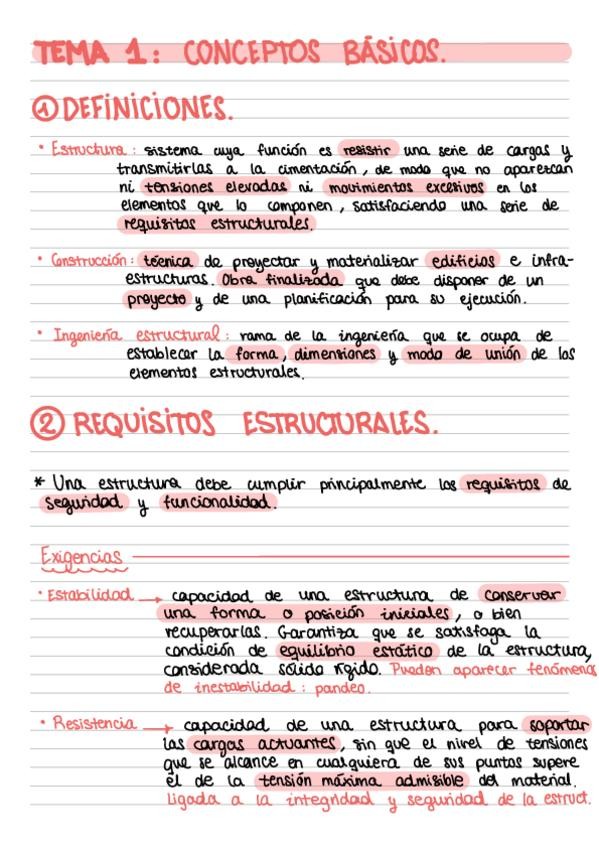 TEMA 1: CONCEPTOS BÁSICOS.
① DEFINICIONES.
• Estructura: sistema cuya función es resistir una serie de cargas y
transmitirlas a la cimentación, de modo que no aparezcan
ni tensiones elevadas ni movimientos excesivos en los
elementos que lo componen, satisfaciendo una serie de
requisitos estructurales.
• Construcción: técnica de proyectar y materializar edificios e infra-
estructuras. Obra finalizada que debe disponer de un
proyecto y de una planificación para su ejecución.
• Ingeniería estructural: rama de la ingeniería que se ocupa de
establecer la forma, dimensiones y modo de unión de los
elementos estructurales.
② REQUISITOS ESTRUCTURALES.
* Una estructura debe cumplir principalmente los requisitos de
seguridad y funcionalidad.
Exigencias
• Estabilidad → capacidad de una estructura de conservar
una forma o posición iniciales, o bien
recuperarlas. Garantiza que se satisfaga la
condición de equilibrio estático de la estructura,
considerada sólido rígido. Pueden aparecer fenómenos
de inestabilidad: pandeo.
• Resistencia → capacidad de una estructura para soportar
las cargas actuantes, sin que el nivel de tensiones
que se alcance en cualquiera de sus puntos supere
el de la tensión máxima admisible del material.
Ligada a la integridad y seguridad de la estruct.